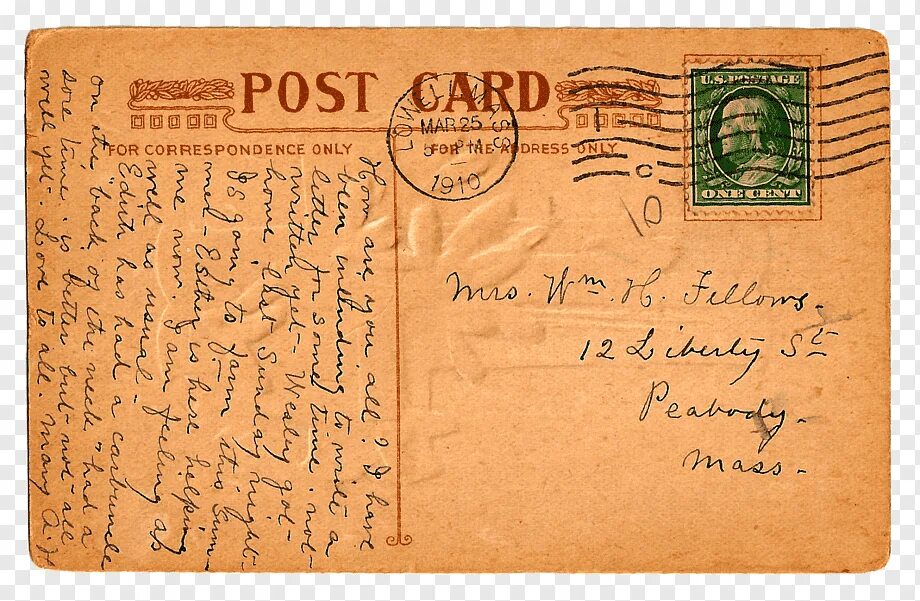 POST CARD
FOR CORRESPONDENCE ONLY
FOR THE ADDRESS ONLY
LOWELL, MASS.
MAR 25
5 PM
1910
U.S. POSTAGE
ONE CENT
1
C
10
How are you all? I have
been intending to write a
letter for some time. not-
written yet- Wesley got-
home last Sunday night-
Is going to farm this Sum-
mer - Esther is here helping
me now. I am feeling as
well as usual -
Edith has had a carbuncle
on the "back of the neck & had a
sore time. is better but-not-all
well yet. Love to all. Mary A.
Mrs. Wm. H. Fellows.
12 Liberty St
Peabody.
Mass.